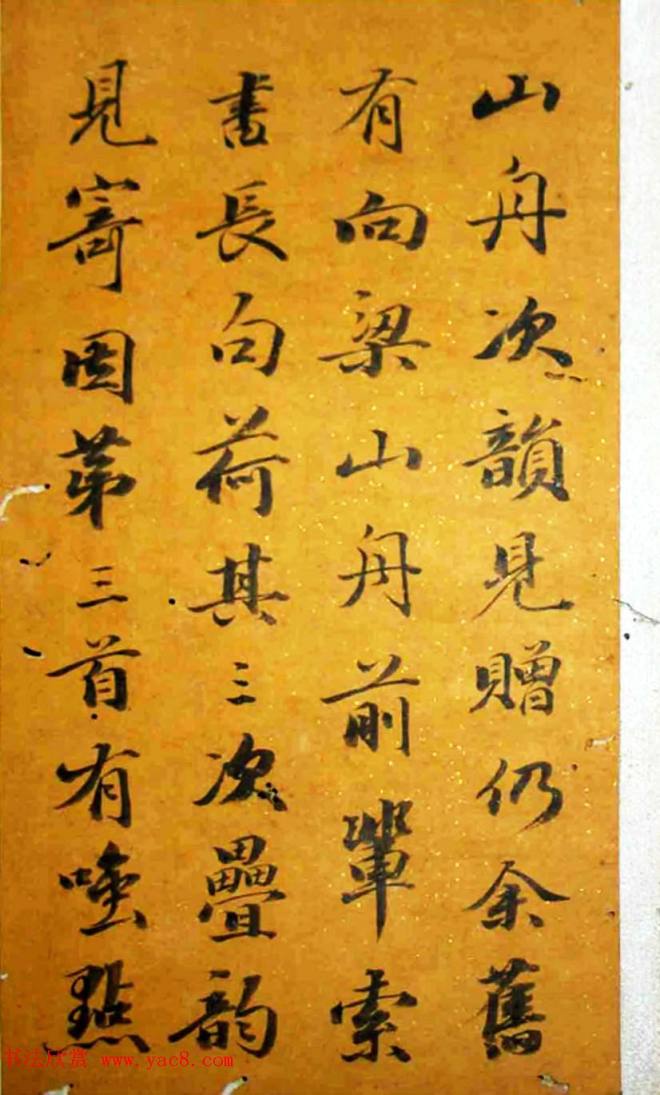 山舟次韻見贈仍余舊
有向梁山舟前輩索
書長句荷其三次疊韵
見寄因第三首有唾點
书法欣赏 www.yac8.com